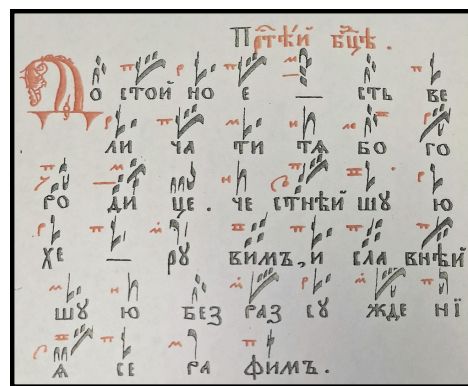 Пⷭ҇тѣ́й бц҃ѣ.
До стой но е — сть ве
ли ча ти тѧ бо го
ро ди це. че стнѣй шꙋ ю
хе — рꙋ вимъ, и сла внѣй
шꙋ ю без раз сꙋ жде нї
ѧ се ра фимъ.